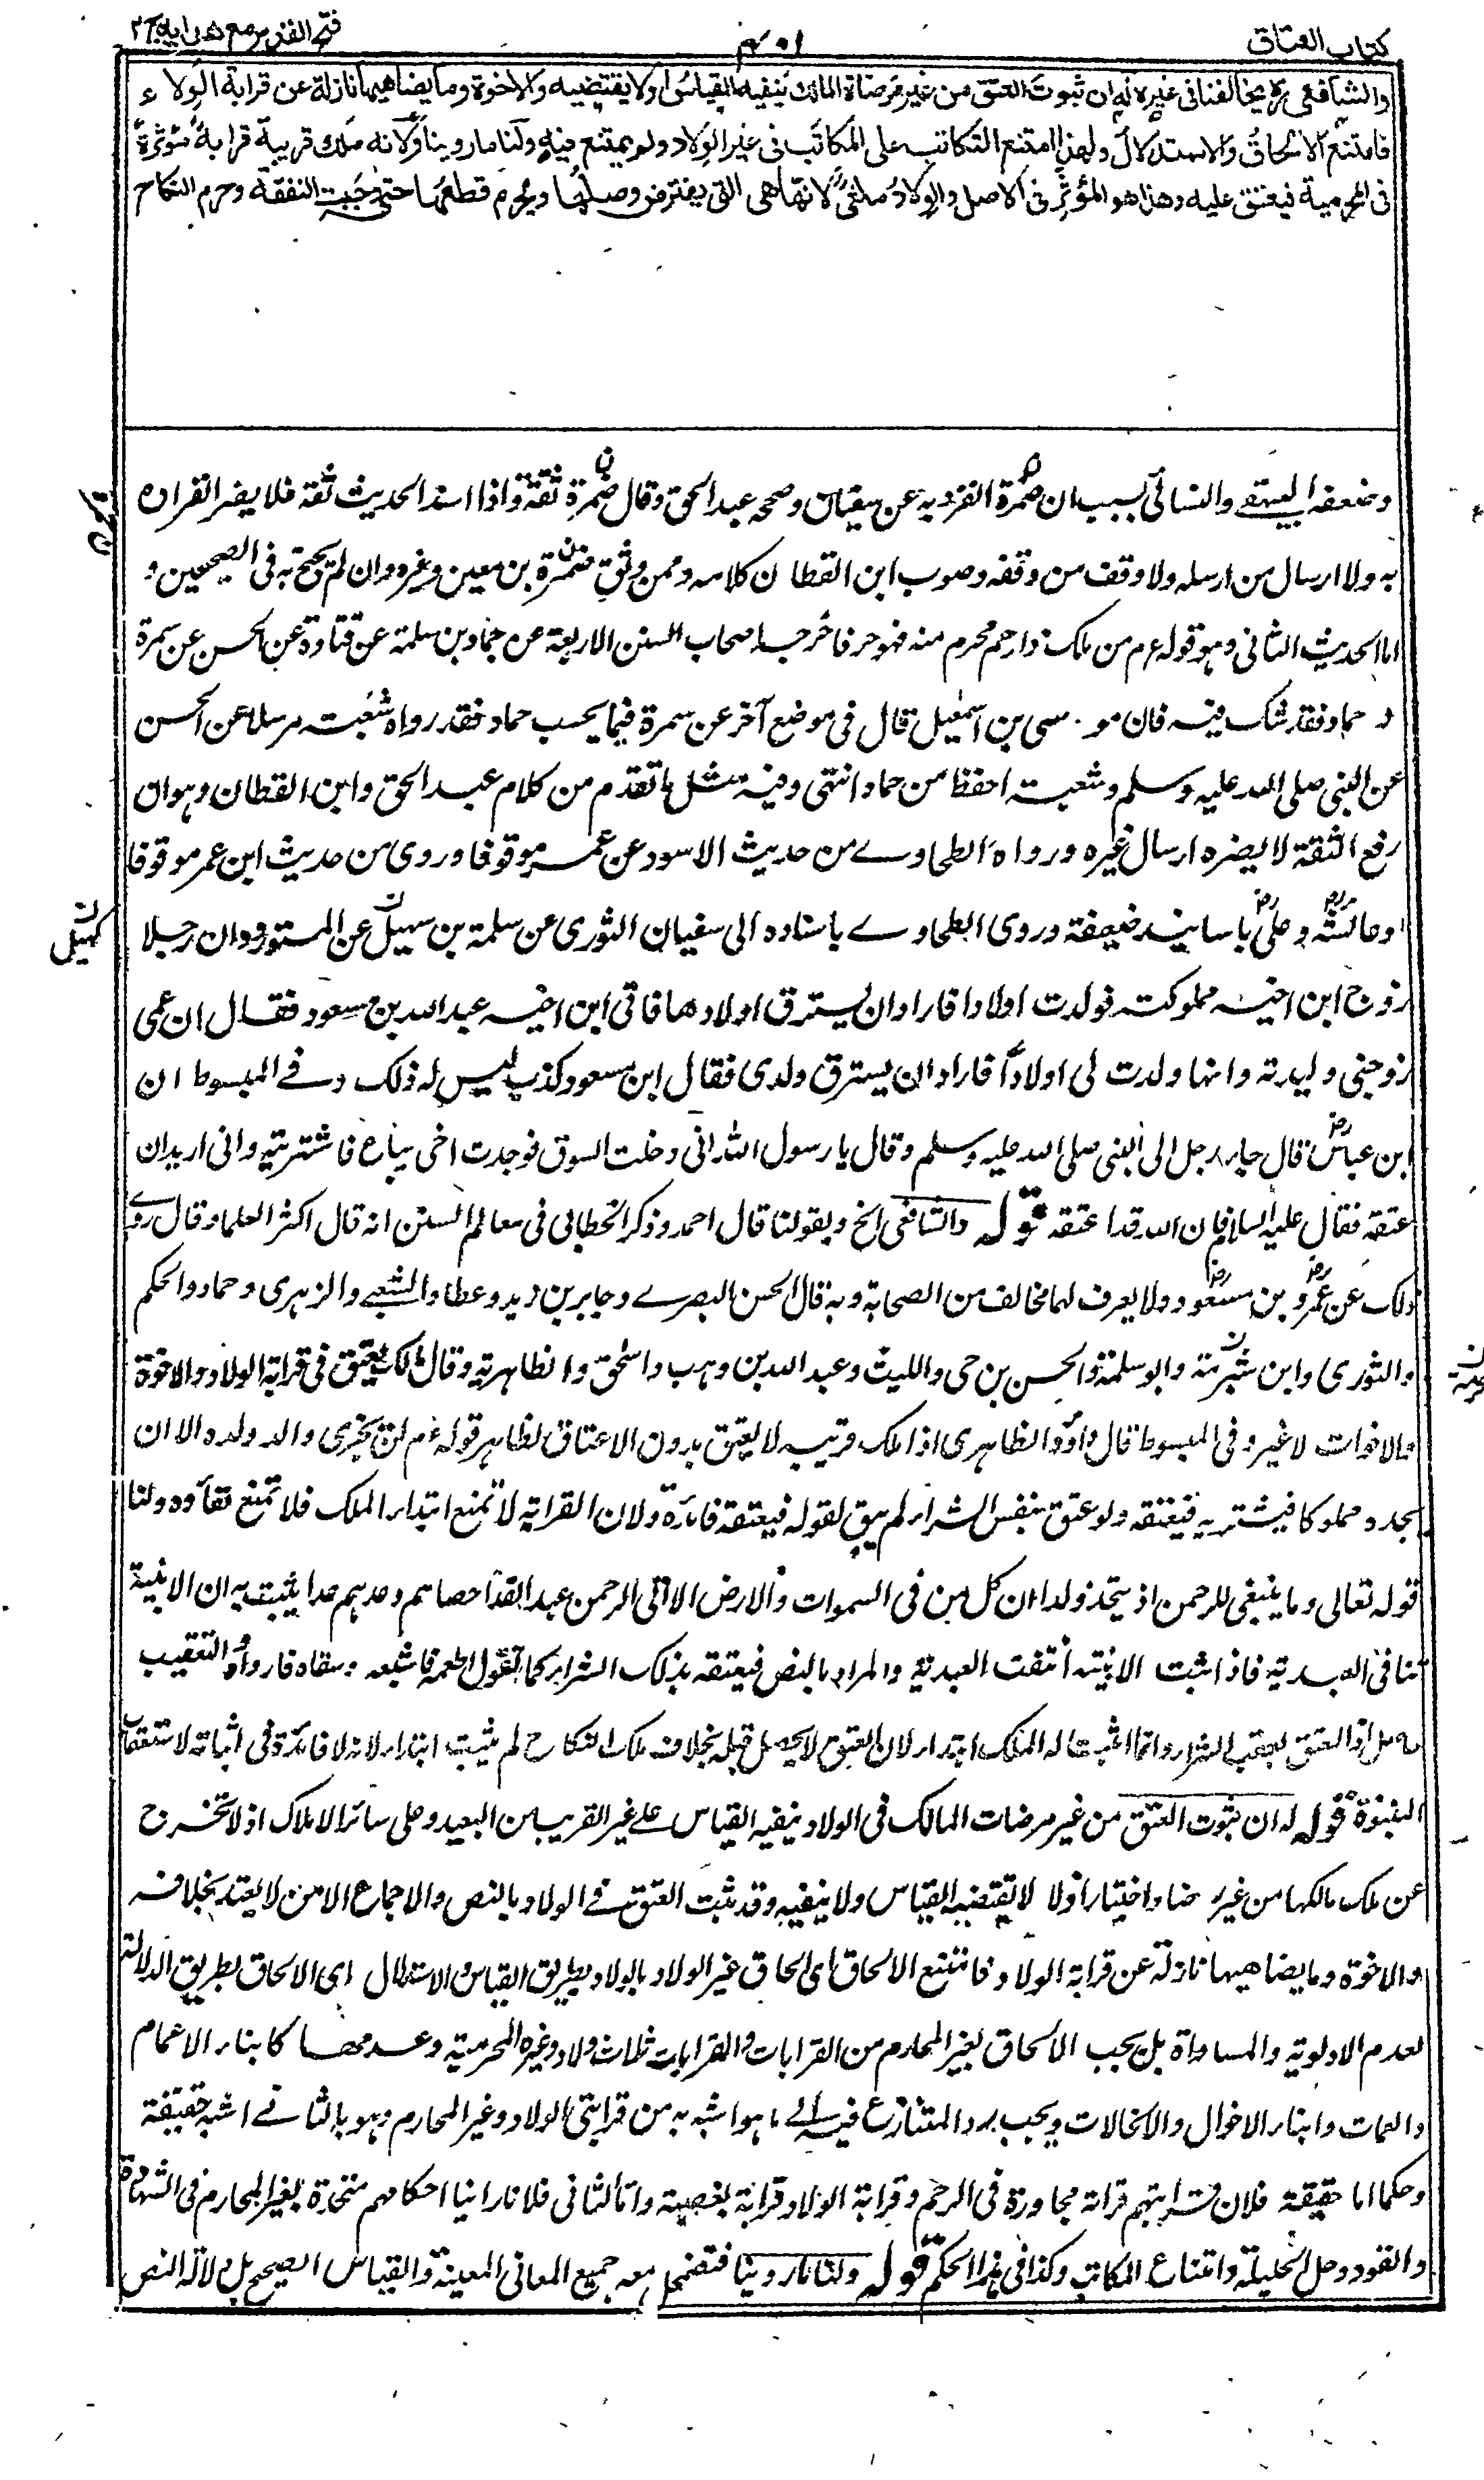 كتاب العتاق
فتح القدير مع هداية ج٢
والشافعي رح يخالفنا في غيره له ان ثبوت العتق من غير مرضاة المالك ينفيه القياس او لا يقتضيه والاخوة وما يضاهيها نازلة عن قرابة الولاء
فامتنع الالحاق والاستدلال ولهذا امتنع التكاتب على المكاتب في غير الولاد ولم يمتنع فيه ولنا ما روينا ولانه ملك قريبه قرابة مؤثرة
في المحرمية فيعتق عليه وهذا هو المؤثر في الاصل والولاد ملغى لانها هي التي يفترض وصلها ويحرم قطعها حتى وجبت النفقة وحرم النكاح
وضعفه البيهقي والنسائي بسبب ان ضمرة انفرد به عن سفيان وصححه عبد الحق وقال ضمرة ثقة واذا اسند الحديث ثقة فلا يضر انفراده
به ولا ارسال من ارسله ولا وقف من وقفه وصوب ابن القطان كلامه وممن وثق ضمرة بن معين وغيره وان لم يحتج به في الصحيحين و
اما الحديث الثاني وهو قوله عم من ملك ذا رحم محرم منه فهو حر فاخرجه اصحاب السنن الاربعة عن حماد بن سلمة عن قتادة عن الحسن عن سمرة
و حماد فقد شك فيه فان موسى بن اسمعيل قال في موضع آخر عن سمرة فيما يحسب حماد فقد رواه شعبة مرسلا عن الحسن
عن النبي صلى الله عليه وسلم وشعبة احفظ من حماد انتهى وفيه مثل ما تقدم من كلام عبد الحق وابن القطان وهو ان
رفع الثقة لا يضره ارسال غيره ورواه الطحاوي من حديث الاسود عن عمر موقوفا وروى من حديث ابن عمر موقوفا
وعائشة رض وعلي رض باسانيد ضعيفة وروى الطحاوي باسناده الى سفيان الثوري عن سلمة بن سهيل عن المستورد ان رجلا
كهيل ن
زوج ابن اخيه مملوكته فولدت اولادا فاراد ان يسترق اولادها فاتى ابن اخيه عبد الله بن مسعود فقال ان عمي
زوجني وليدته وانها ولدت لي اولادا فاراد ان يسترق ولدي فقال ابن مسعود كذب ليس له ذلك وفي المبسوط ان
ابن عباس رض قال جاء رجل الى النبي صلى الله عليه وسلم وقال يا رسول الله اني دخلت السوق فوجدت اخي يباع فاشتريته واني اريد ان
عتقه فقال عليه السلام فان الله قد اعتقه قوله والشافعي الخ وبقولنا قال احمد وذكر الخطابي في معالم السنن انه قال اكثر العلماء وقال روي
ذلك عن عمر رض وبن مسعود رض ولا يعرف لهما مخالف من الصحابة وبه قال الحسن البصري وجابر بن زيد وعطاء والشعبي والزهري وحماد والحكم
والثوري وابن شبرمة وابو سلمة والحسن بن حي والليث وعبد الله بن وهب واسحق والظاهرية وقال مالك يعتق في قرابة الولاد والاخوة
والاخوات لا غير وفي المبسوط قال داود الظاهري اذا ملك قريبه لا يعتق بدون الاعتاق لظاهر قوله عم لن يجزي والد ولده الا ان
يجده مملوكا فيشتريه فيعتقه ولو عتق بنفس الشراء لم يبق لقوله فيعتقه فائدة ولان القرابة لا تمنع ابتداء الملك فلا تمنع بقاؤه ولنا
قوله تعالى وما ينبغي للرحمن ان يتخذ ولدا ان كل من في السموات والارض الا آتي الرحمن عبدا لقد احصاهم وعدهم عدا يثبت به ان الابنية
تنافي العبدية فاذا ثبت الابنية انتفت العبدية والمراد بالنص فيعتقه بذلك الشراء كما تقول اطعمه فاشبعه وسقاه فارواه والتعقيب
حاصل اذ العتق يعقب الشراء وانما اثبتنا له الملك ابتداء لان العتق لا يحصل قبله بخلاف ملك النكاح لم يثبت ابتداء لانه لا فائدة في اثباته لاستعقاب
البينونة قوله له ان ثبوت العتق من غير مرضات المالك في الولاد ينفيه القياس على غير القريب من البعيد وعلى سائر الاملاك اذ لا تخرج
عن ملك مالكها من غير رضا واختيار اولا لا يقتضيه القياس ولا ينفيه وقد ثبت العتق في الولاد بالنص والاجماع الا من لا يعتد بخلافه
والاخوة وما يضاهيها نازلة عن قرابة الولاد فامتنع الالحاق اي الحاق غير الولاد بالولاد بطريق القياس والاستدلال اي الالحاق بطريق الدلالة
لعدم الاولوية والمساواة بل يجب الالحاق بغير المحارم من القرابات والقرابات ثلاث ولاد وغيره المحرمية وعدمها كابناء الاعمام
والعمات وابناء الاخوال والخالات ويجب رد المتنازع فيه الى ما هو اشبه به من قرابتي الولاد وغير المحارم وهو بالثاني اشبه حقيقة
وحكما اما حقيقة فلان قرابتهم قرابة مجاورة في الرحم وقرابة الولاد قرابة بعضية واما الثاني فلانا راينا احكامهم متحدة بغير المحارم في الشهادة
والقود وحل الحليلة وامتناع التكاتب وكذا في هذا الحكم قوله ولنا ما روينا فتضمحل معه جميع المعاني المعينة والقياس الصحيح بل دلالة النص